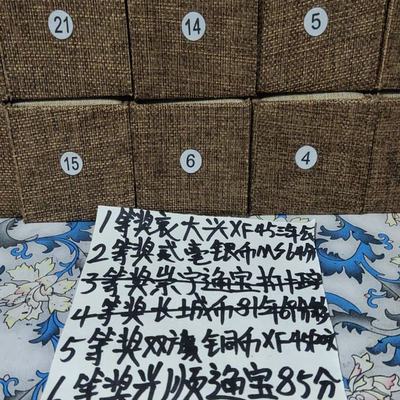 21 14 5
15 6 4
1等奖袁大头XF45三年
2等奖贰毫银币MS64分
3等奖崇宁通宝
4等奖长城币81年
5等奖双旗铜币XF45
6等奖兴顺通宝85分